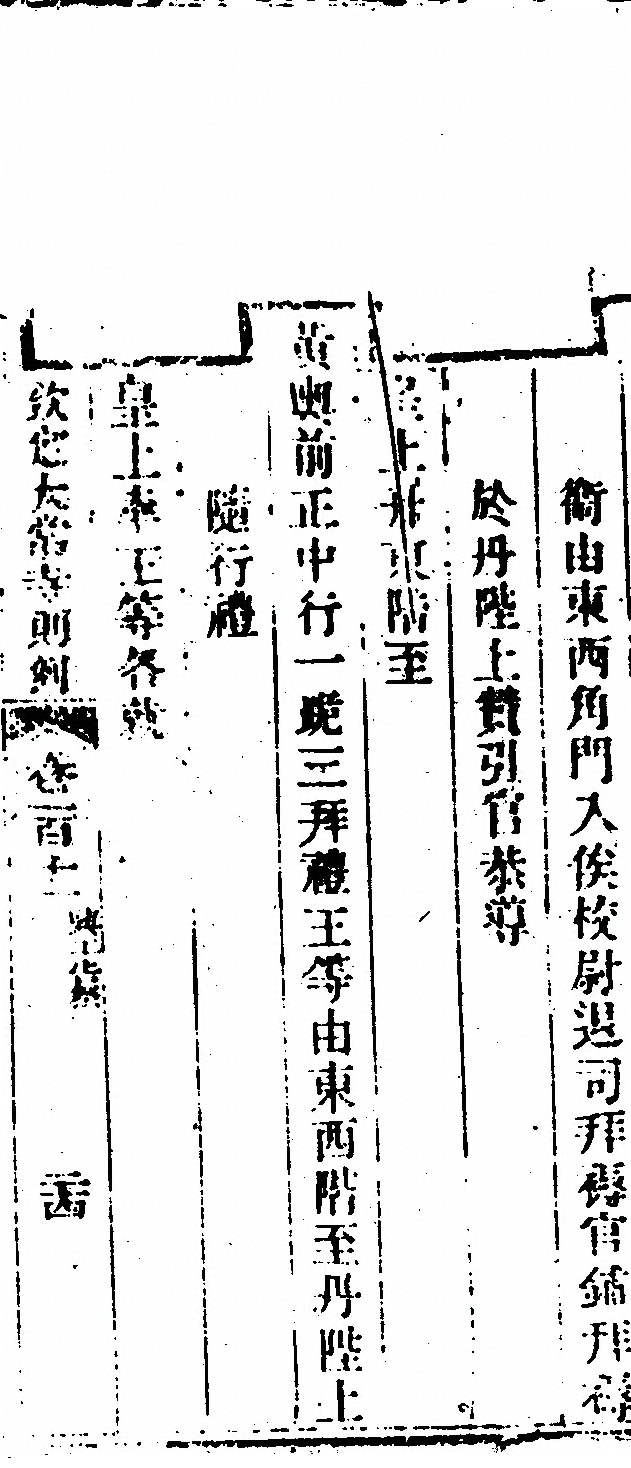 衛由東西角門入俟校尉退司拜褥官鋪拜褥
於丹陛上贊引官恭導
皇上升東階至
黃輿前正中行一跪三拜禮王等由東西階至丹陛上
隨行禮
皇上率王等各就
欽定太常寺則例
卷一百十